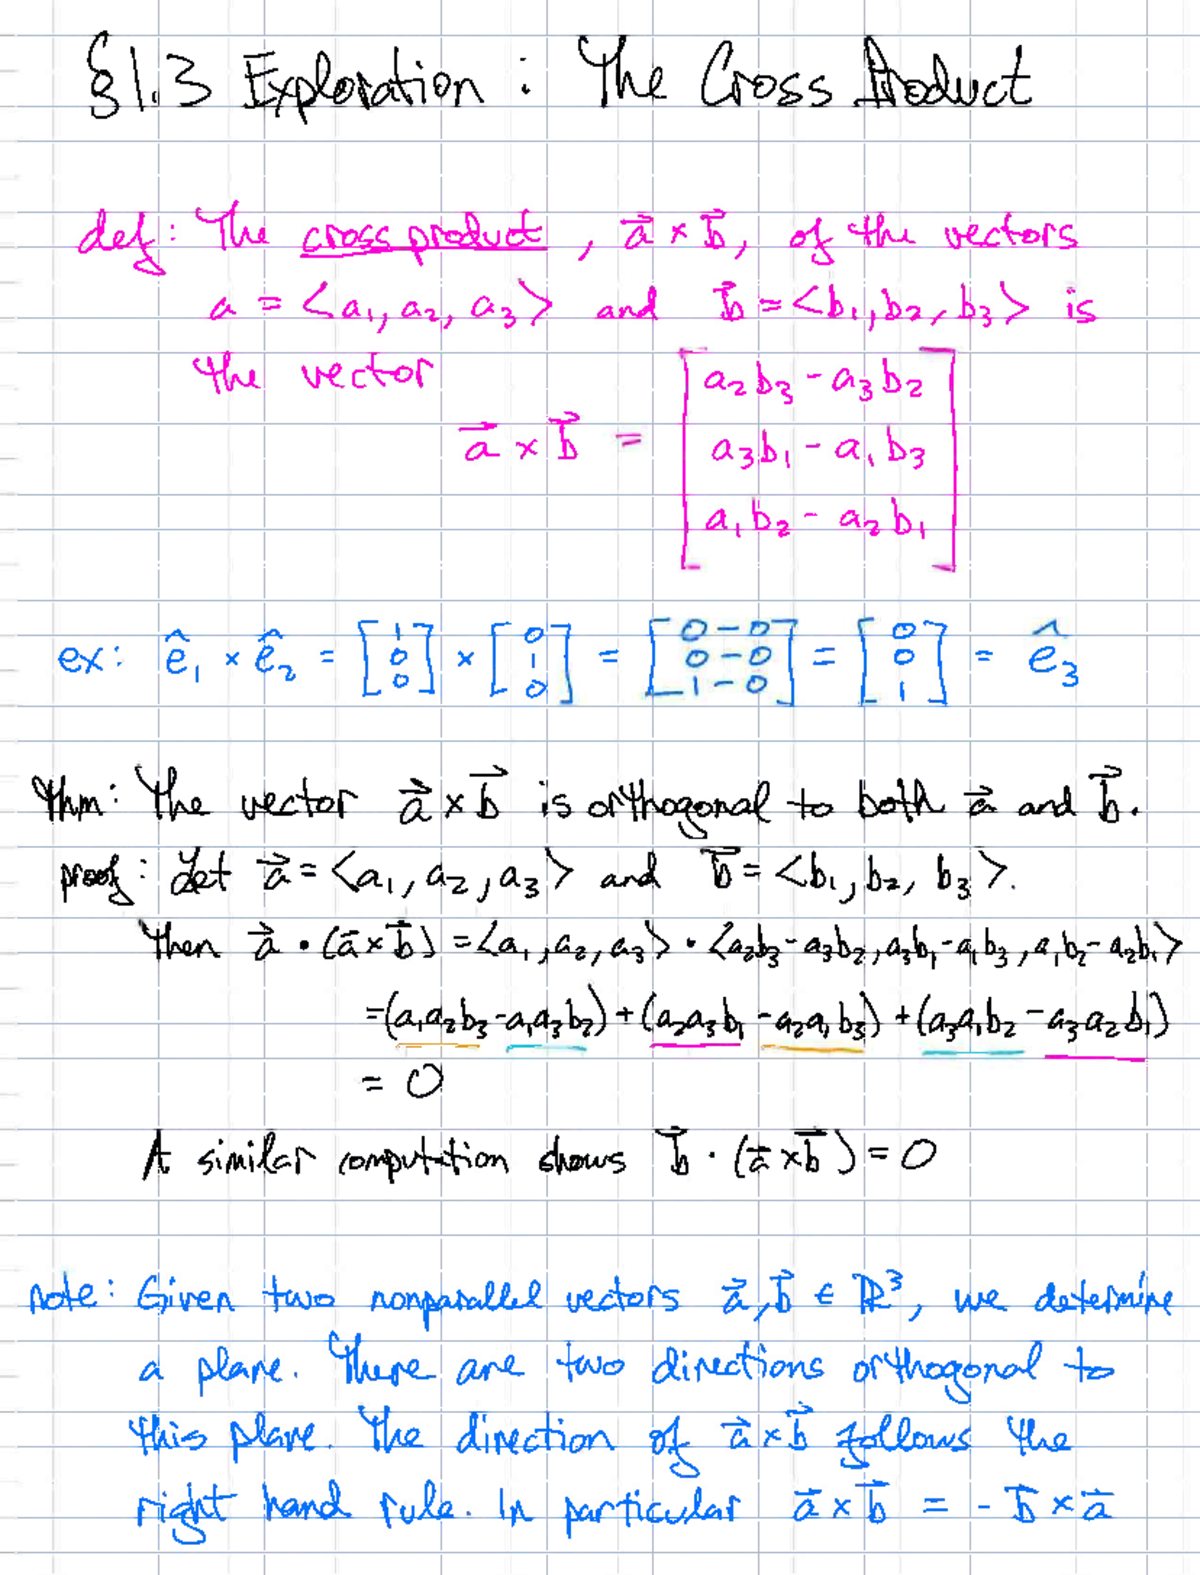 §1.3 Exploration: The Cross Product
def: The cross product, a⃗ × b⃗, of the vectors
a = <a₁, a₂, a₃> and b⃗ = <b₁, b₂, b₃> is
the vector
a⃗ × b⃗ = [a₂b₃ - a₃b₂
a₃b₁ - a₁b₃
a₁b₂ - a₂b₁]
ex: ê₁ × ê₂ = [1 0 0] × [0 1 0] = [0-0 0-0 1-0] = [0 0 1] = ê₃
thm: The vector a⃗ × b⃗ is orthogonal to both a⃗ and b⃗.
proof: Let a⃗ = <a₁, a₂, a₃> and b⃗ = <b₁, b₂, b₃>.
Then a⃗ · (a⃗ × b⃗) = <a₁, a₂, a₃> · <a₂b₃ - a₃b₂, a₃b₁ - a₁b₃, a₁b₂ - a₂b₁>
= (a₁a₂b₃ - a₁a₃b₂) + (a₂a₃b₁ - a₂a₁b₃) + (a₃a₁b₂ - a₃a₂b₁)
= 0
A similar computation shows b⃗ · (a⃗ × b⃗) = 0
note: Given two nonparallel vectors a⃗, b⃗ ∈ ℝ³, we determine
a plane. There are two directions orthogonal to
this plane. The direction of a⃗ × b⃗ follows the
right hand rule. In particular a⃗ × b⃗ = - b⃗ × a⃗